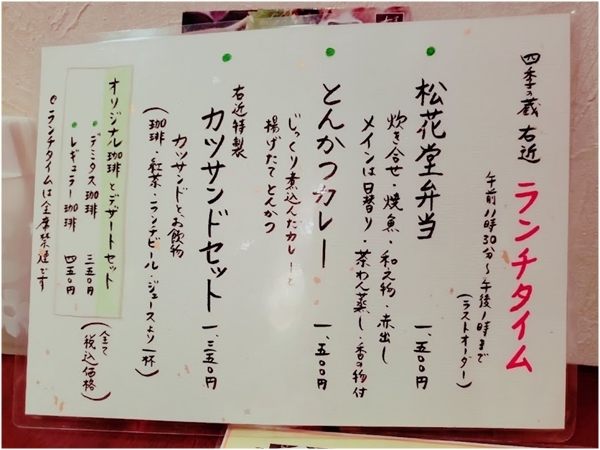 四季の蔵 右近
ランチタイム
午前11時30分〜午後1時まで
(ラストオーダー)
松花堂弁当 一、五〇〇円
炊き合せ・焼魚・和え物・赤出し
メインは日替り・茶わん蒸し・香の物付
とんかつカレー 一、五〇〇円
じっくり煮込んだカレーと
揚げたてとんかつ
右近特製
カツサンドセット 一、三五〇円
カツサンドとお飲物
(珈琲・紅茶・ランチビール・ジュースより一杯)
オリジナル珈琲とデザートセット
デミタス珈琲 三五〇円
レギュラー珈琲 四五〇円
(全て税込価格)
ランチタイムは全席禁煙です